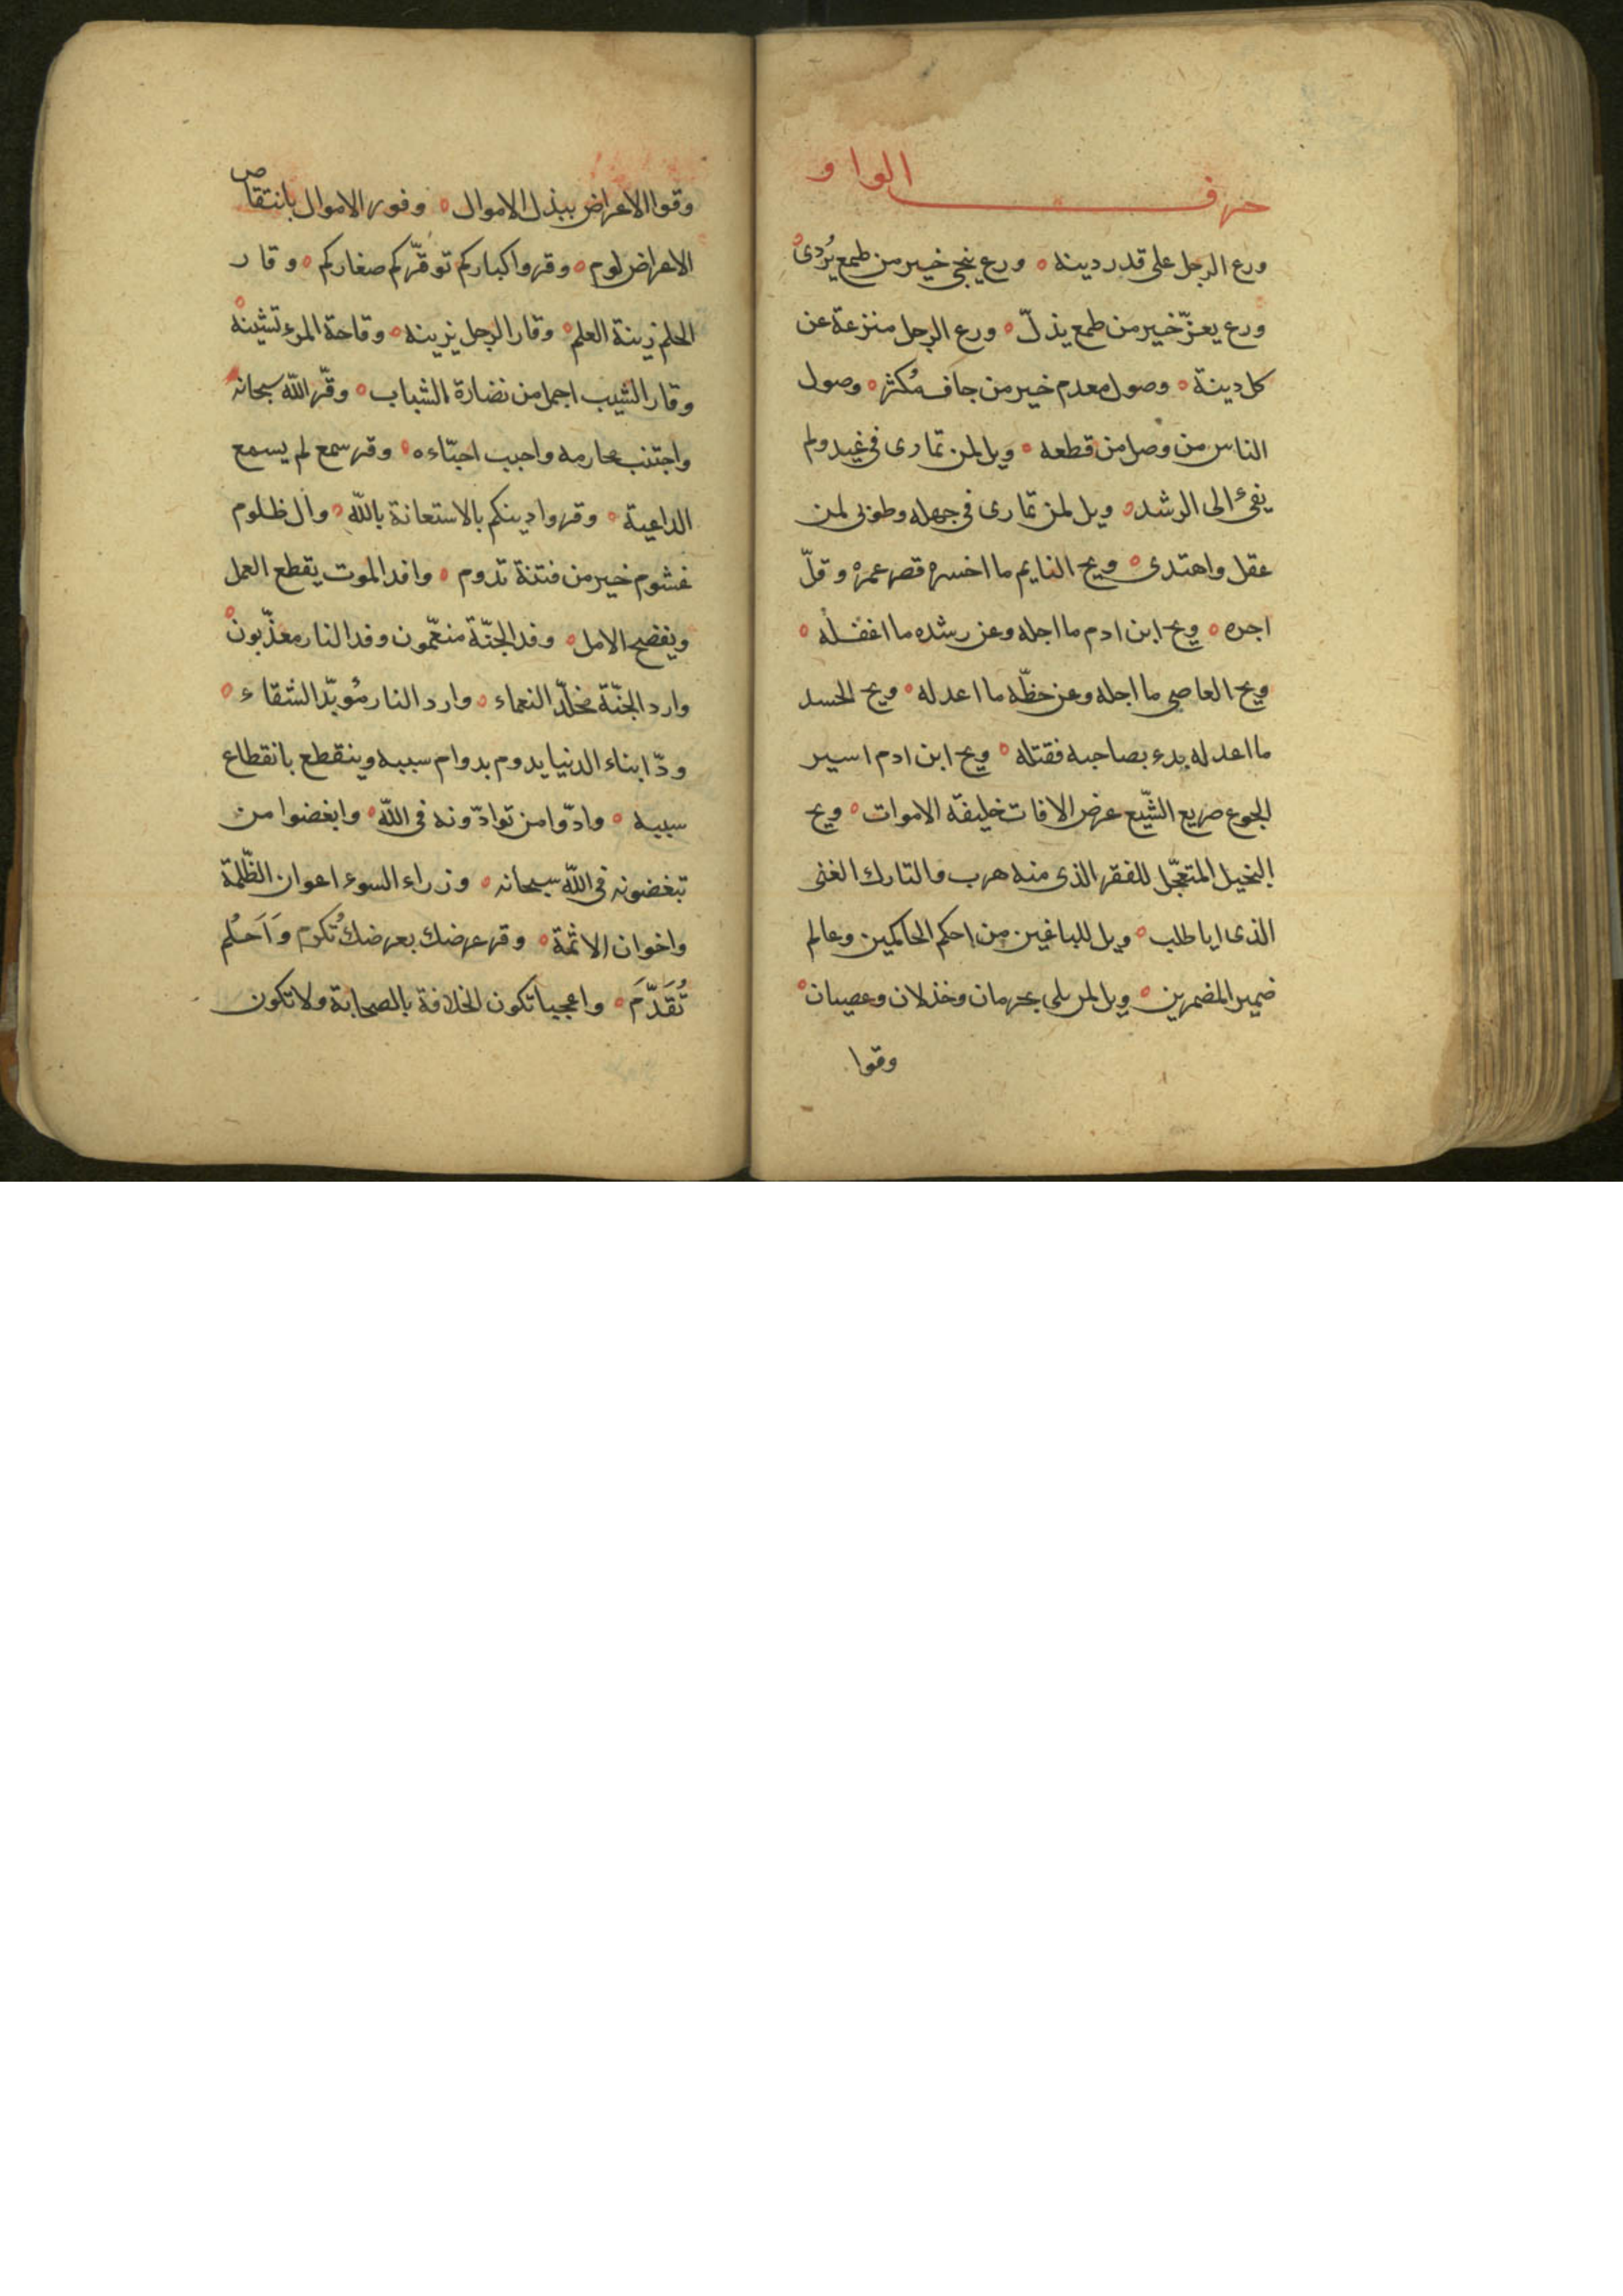 حرف الواو
ورع الرجل على قدر دينه ورع ينجى خير من طمع يُردى
ورع يعزّ خير من طمع يذلّ ورع الرجل منزعة عن
كل دينة وصول معدم خير من جاف مُكثر وصول
الناس من وصل من قطعه ويل لمن تمارى فى غيه ولم
يفئ الى الرشد ويل لمن تمارى فى جهله وطوبى لمن
عقل واهتدى ويح النايم ما اخسره قصر عمره وقلّ
اجره ويح ابن ادم ما اجله وعن رشده ما اغفله
ويح العاصى ما اجله وعن حظّه ما اعدله ويح الحسد
ما اعدله بدء بصاحبه فقتله ويح ابن ادم اسير
الجوع صريع الشّبع عرض الافات خليفة الاموات ويح
البخيل المتعجّل للفقر الذى منه هرب والتارك الغنى
الذى اياه طلب ويل للباغين من احكم الحاكمين وعالم
ضمير المضمرين ويل لمن بلى بحرمان وخذلان وعصيان
وقوا
وقوا الاعراض ببذل الاموال وفور الاموال بانتقاص
الاعراض لوم وقروا كباركم توقّركم صغاركم وقار
الحلم زينة العلم وقار الرجل يزينه وقاحة المرء تشينه
وقار الشيب اجمل من نضارة الشباب وقّر الله سبحانه
واجتنب محارمه واحبب احبّاءه وقر سمع لم يسمع
الداعية وقروا دينكم بالاستعانة بالله وال ظلوم
غشوم خير من فتنة تدوم وافد الموت يقطع العمل
ويفضح الامل وفد الجنّة منعّمون وفد النار معذّبون
وارد الجنّة مخلّد النعماء وارد النار مُوبّد الشقاء
ودّ ابناء الدنيا يدوم بدوام سببه وينقطع بانقطاع
سببه وادّوا من توادّونه فى الله وابغضوا من
تبغضونه فى الله سبحانه وزراء السوء اعوان الظّلمة
واخوان الاثمة وقر عرضك بعرضك تُكرم وَاَحلُم
تُقَدَّمَ واعجبا تكون الخلافة بالصحابة ولا تكون